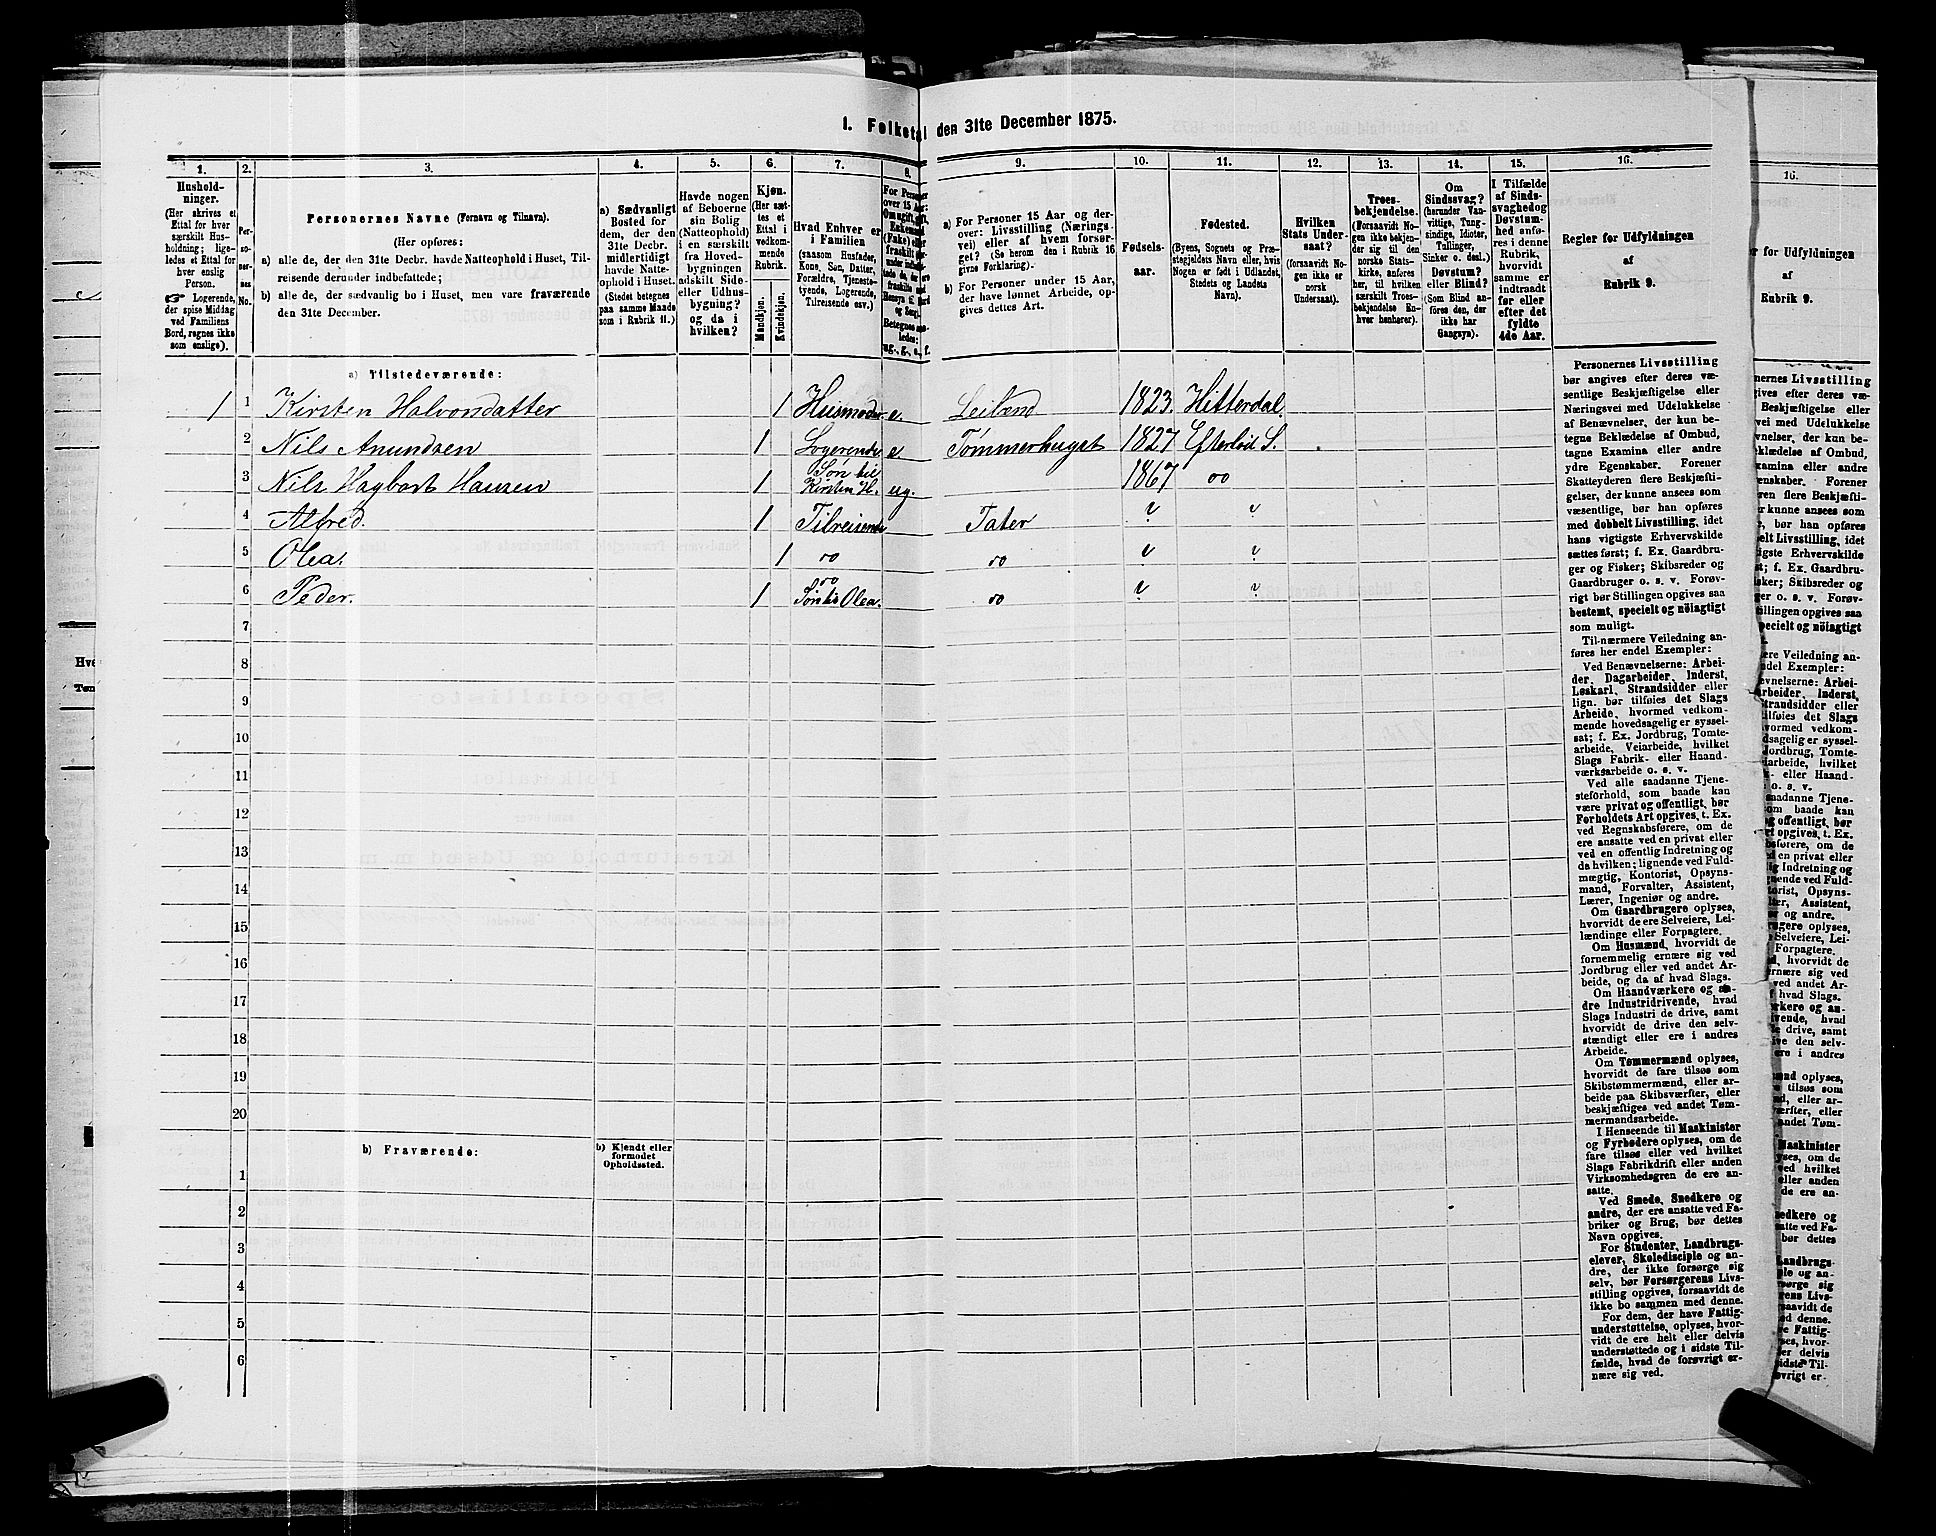 1. Folketal den 31te December 1875.
1. 2. 3. 4. 5. 6. 7. 8. 9. 10. 11. 12. 13. 14. 15. 16.
Hushold-
ninger.
(Her skrives et
Ettal for hver
særskilt Hus-
holdning; lige-
ledes et Ettal for
hver enslig
Person.
Logerende,
der spise Middag
ved Familiens
Bord, regnes ikke
som enslige).
Per-
so-
ner-
nes
No.
Personernes Navne (Fornavn og Tilnavn).
(Her opføres:
a) alle de, der den 31te Decbr. havde Natteophold i Huset, Til-
reisende derunder indbefattede;
b) alle de, der sædvanlig bo i Huset, men vare fraværende
den 31te December.
a) Sædvanligt
Bosted for
dem, der den
31te Decbr.
midlertidigt
havde Natte-
ophold i Huset.
(Stedet betegnes
paa samme Maade
som i Rubrik 11.)
Havde nogen
af Beboerne
sin Bolig
(Natteophold)
i en særskilt
fra Hoved-
bygningen
adskilt Side-
eller Udhus-
bygning?
og da i
hvilken?
Kjøn.
(Her sæt-
tes et
Ettal i
vedkom-
mende
Rubrik.
Mandkjøn.
Kvindekjøn.
Hvad Enhver er
i Familien
(saasom Husfader,
Kone, Søn, Datter,
Forældre, Tjeneste-
tyende, Logerende,
Tilreisende osv.)
For Personer
over 15 Aar:
ug., g., e., f.
a) For Personer 15 Aar og der-
over: Livsstilling (Nærings-
vei) eller af hvem forsør-
get? (Se herom den i Rubrik 16
givne Forklaring).
b) For Personer under 15 Aar,
der have lønnet Arbeide, op-
gives dettes Art.
Fødsels-
aar.
Fødested.
(Byens, Sognets og Præ-
stegjeldets Navn eller, hvis
Nogen er født i Udlandet,
Stedets og Landets
Navn).
Hvilken
Stats Under-
saat?
(forsaavidt No-
gen ikke er
norsk
Undersaat).
Troes-
bekjendelse.
(Forsaavidt No-
gen ikke bekjen-
der sig til den
norske Stats-
kirke, anføres
her, til hvilken
særskilt Troes-
bekjendelse En-
hver henhører).
Om
Sindssvag?
(herunder Van-
vittige, Tung-
sindige, Idioter,
Tallinger,
Sinker o. desl.)
Døvstum?
eller Blind?
(Som Blind an-
føres den, der
ikke har
Gangsyn).
I Tilfælde
af Sinds-
svaghed og
Døvstum-
hed anfø-
res i denne
Rubrik,
hvorvidt
samme er
indtraadt
før eller
efter det
fyldte
4de Aar.
Regler for Udfyldningen
af
Rubrik 9.
a) Tilstedeværende:
1 1 Kirsten Halvorsdatter 1 Husmoder e. Leilænd. 1823. Hitterdal
2 Nils Amundsen 1 Logerende e Tømmerhugst 1827. Efterlød S.
3 Nils Hagbart Hansen 1 Søn til Kirsten H. ug. 1867 oo
4 Alfred. 1 Tilreisende Tater ? ?
5 Olea. 1 oo oo ? ?
6 Peder. 1 oo Søn til Olea. oo ? ?
7
8
9
10
11
12
13
14
15
16
17
18
19
20
b) Fraværende:
b) Kjendt eller
formodet
Opholdssted.
1
2
3
4
5
6
Personernes Livsstilling
bør angives efter deres væ-
sentlige Beskjæftigelse eller
Næringsvei med Udelukkelse
af Benævnelser, der kun be-
tegne Beklædelse af Ombud,
tagne Examina eller andre
ydre Egenskaber. Forener
Skatteyderen flere Beskjæfti-
gelser, der kunne ansees som
væsentlige, bør han opføres
med dobbelt Livsstilling, idet
hans vigtigste Erhvervskilde
sættes først; f. Ex. Gaardbru-
ger og Fisker; Skibsreder og
Gaardbruger o. s. v. Forøv-
rigt bør Stillingen opgives saa
bestemt, specielt og nöiagtigt
som muligt.
Til nærmere Veiledning an-
føres her endel Exempler:
Ved Benævnelserne: Arbei-
der, Dagarbeider, Inderst,
Løskarl, Strandsidder eller
lign. bør tilføies det Slags
Arbeide, hvormed vedkom-
mende hovedsagelig er syssel-
sat; f. Ex. Jordbrug, Tomte-
arbeide, Veiarbeide, hvilket
Slags Fabrik- eller Haand-
værksarbeide o. s. v.
Ved alle saadanne Tjene-
steforhold, som baade kan
være privat og offentligt, bør
Forholdets Art opgives, t. Ex.
ved Regnskabsførere, om de
ere ansatte ved en privat eller
ved en offentlig Indretning og
da hvilken; lignende ved Fuld-
mægtig, Kontorist, Opsyns-
mand, Forvalter, Assistent,
Lærer, Ingeniør og andre.
Om Gaardbrugere oplyses,
hvorvidt de ere Selveiere, Lei-
lændinge eller Forpagtere.
Om Husmænd, hvorvidt de
fornemmelig ernære sig ved
Jordbrug eller ved andet Ar-
beide, og da af hvad Slags.
Om Haandværkere og an-
dre Industridrivende, hvad
Slags Industri de drive, samt
hvorvidt de drive den selv-
stændigt eller ere i andres
Arbeide.
Om Tømmermænd oplyses,
hvorvidt de fare tilsøs som
Skibstømmermænd, eller ar-
beide paa Skibsværfter, eller
beskjæftiges ved andet Tøm-
mermandsarbeide.
I Henseende til Maskinister
og Fyrbødere oplyses, om de
fare tilsøs eller ved hvilket
Slags Fabrikdrift eller anden
Virksomhedsgren de ere an-
satte.
Ved Smede, Snedkere og
andre, der ere ansatte ved Fa-
briker og Brug, bør dettes
Navn opgives.
For Studenter, Landbrugs-
elever, Skoledisciple og an-
dre, der ikke forsørge sig
selv, bør Forsørgerens Livs-
stilling opgives, forsaavidt de
ikke bo sammen med denne.
For dem, der have Fattig-
understøttelse, oplyses, hvor-
vidt de ere helt eller delvis
understøttede og i sidste Til-
fælde, hvad de forøvrigt er-
nære sig ved.